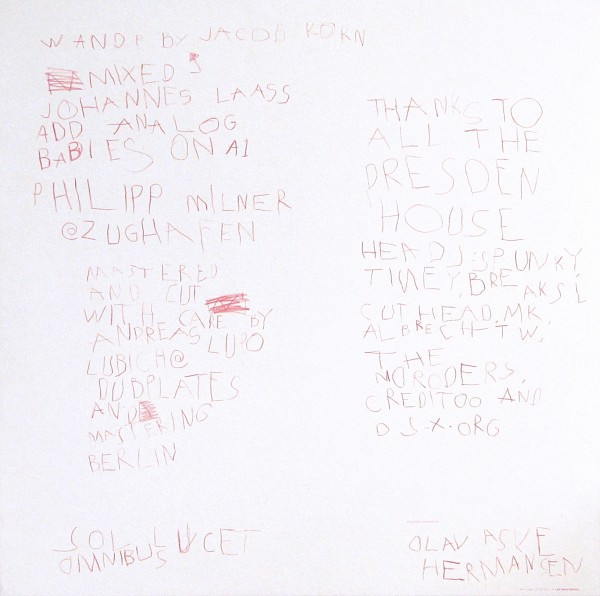 W AND P BY JACOB KORN
MIXED
JOHANNES LAASS
ADD ANALOG
BABIES ON A1
PHILIPP MILNER
@ZUGHAFEN
MASTERED
AND CUT
WITH CARE BY
ANDREAS LUPO
LUBICH@
DUBPLATES
AND
MASTERING
BERLIN
SOL LUCET
OMNIBUS
THANKS TO
ALL THE
DRESDEN
HOUSE
HEADS:SPUNKY,
TIMEY, BREAKSL
CUTHEAD, MK,
ALBRECHT W,
THE
MORODERS,
CREDITOO AND
DJ-X.ORG
OLAV ASKE
HERMANSEN